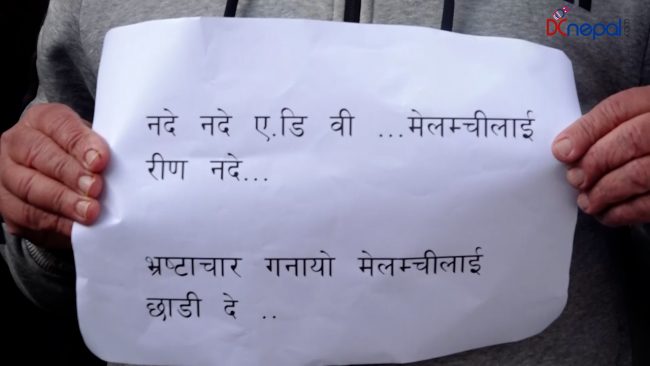 DCnepal
नदे नदे ए.डि वी ...मेलम्चीलाई
रीण नदे...
भ्रष्टाचार गनायो मेलम्चीलाई
छाडी दे ..